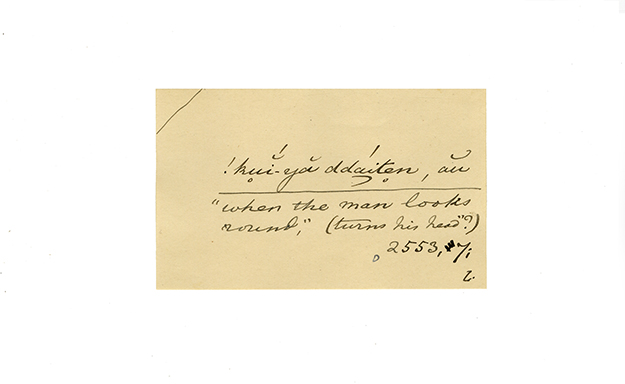 !kụĭ́-yă ddáitẹn, ău
"when the man looks
round," (turns his head"?)
2553, 7;